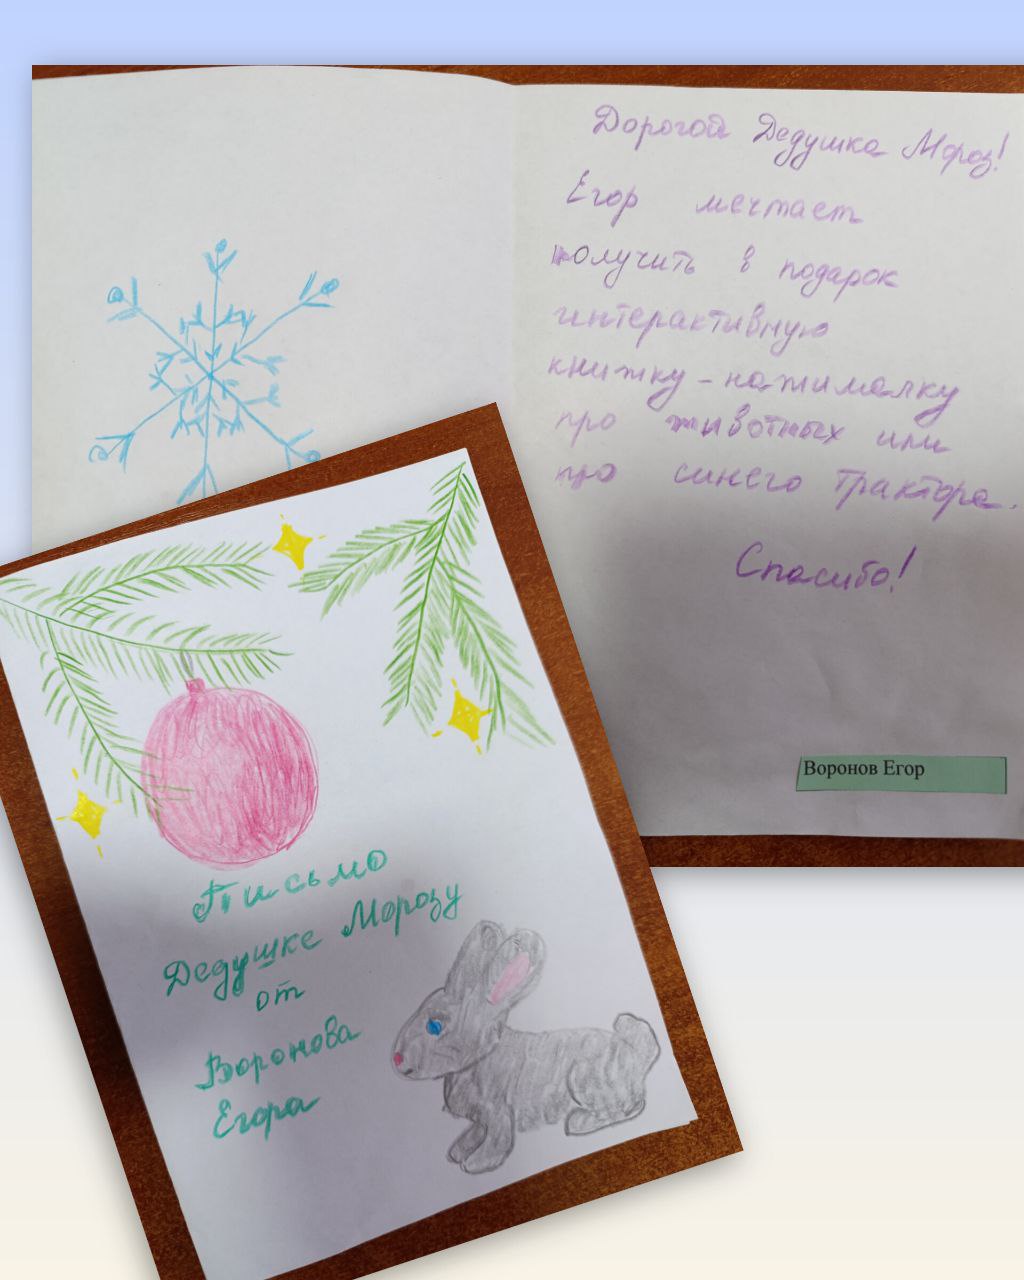 Дорогой Дедушка Мороз!
Егор мечтает
получить в подарок
интерактивную
книжку-нажималку
про животных или
про синего трактора.
Спасибо!
Воронов Егор
Письмо
Дедушке Морозу
от
Воронова
Егора